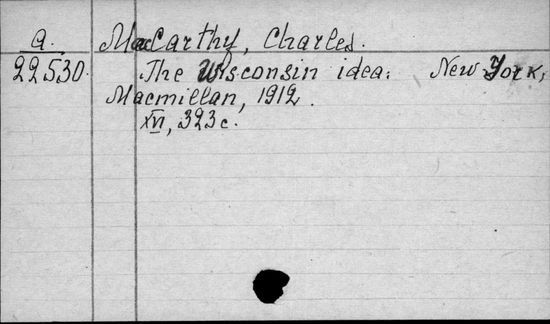 a. MacCarthy, Charles.
22530. The Wisconsin idea. New York,
Macmillan, 1912.
XVI, 323 c.